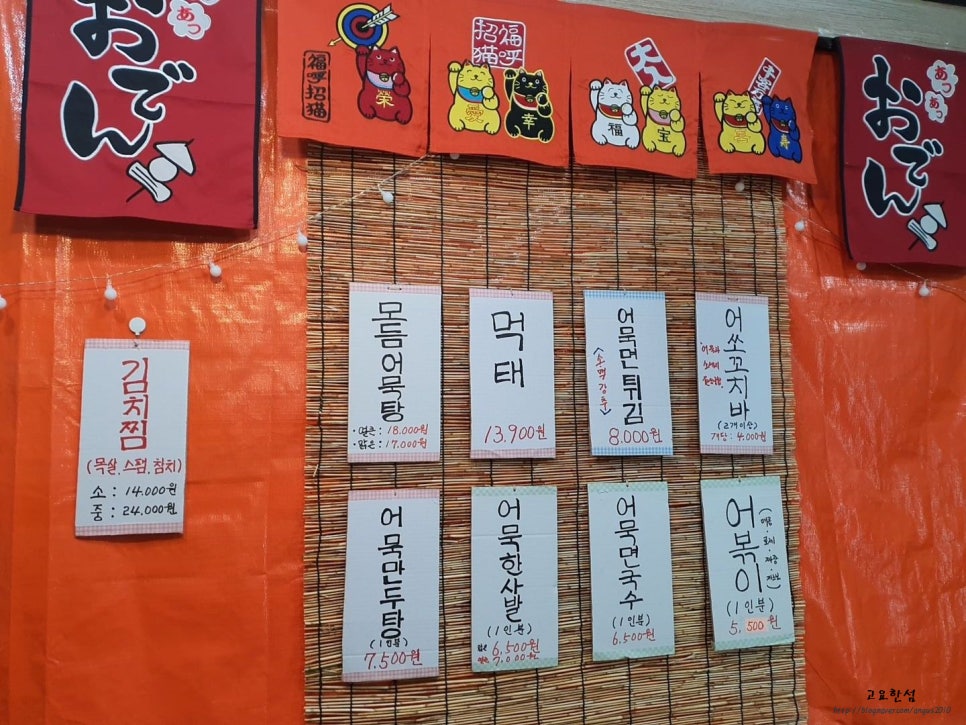 おでん
あつ
福呼招猫
栄
招福
猫呼
愛
幸
大入
福
宝
おでん
あつ
あつ
김치찜
(목살, 스팸, 참치)
소 : 14,000원
중 : 24,000원
모듬어묵탕
·얼큰 : 18,000원
·맑은 : 17,000원
먹태
13,900원
어묵면튀김
<소맥강추>
8,000원
어쏘꼬치바
(2개이상)
개당 : 4,000원
어묵만두탕
(1인분)
7,500원
어묵한사발
(1인분)
6,500원
7,000원
어묵면국수
(1인분)
6,500원
어볶이
(1인분)
5,500원
고요한섬